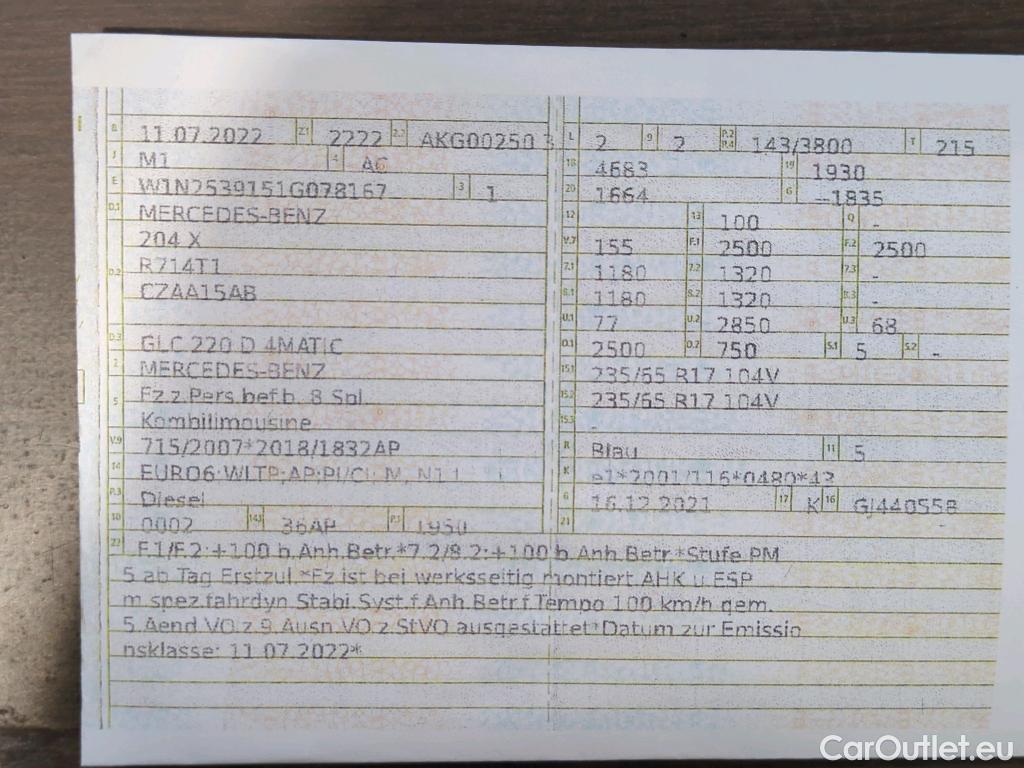 B 11.07.2022 2.1 2222 2.2 AKG00250 3
J M1 4 AC
E W1N2539151G078167 3 1
D.1 MERCEDES-BENZ
204 X
D.2 R714T1
CZAA15AB
D.3 GLC 220 D 4MATIC
2 MERCEDES-BENZ
5 Fz.z.Pers.bef.b. 8 Spl.
Kombilimousine
V.9 715/2007*2018/1832AP
14 EURO6;WLTP;AP;PI/CI; M, N1 I
P.3 Diesel
10 0002 14.1 36AP P.1 1950
L 2 9 2 P.2 P.4 143/3800 T 215
18 4683 19 1930
20 1664 G -1835
12 13 100 Q -
V.7 155 F.1 2500 F.2 2500
7.1 1180 7.2 1320 7.3 -
8.1 1180 8.2 1320 8.3 -
U.1 77 U.2 2850 U.3 68
O.1 2500 O.2 750 S.1 5 S.2 -
15.1 235/65 R17 104V
15.2 235/65 R17 104V
15.3 -
R Blau 11 5
K e1*2001/116*0480*43
6 16.12.2021 17 K 16 GJ440558
21
22 F.1/F.2:+100 b.Anh.Betr.*7.2/8.2:+100 b.Anh.Betr.*Stufe PM
5 ab Tag Erstzul.*Fz ist bei werksseitig montiert.AHK u.ESP
m.spez.fahrdyn.Stabi.Syst.f.Anh.Betr.f.Tempo 100 km/h gem.
5.Aend.VO.z.9.Ausn.VO z.StVO ausgestattet*Datum zur Emissio
nsklasse: 11.07.2022*
CarOutlet.eu